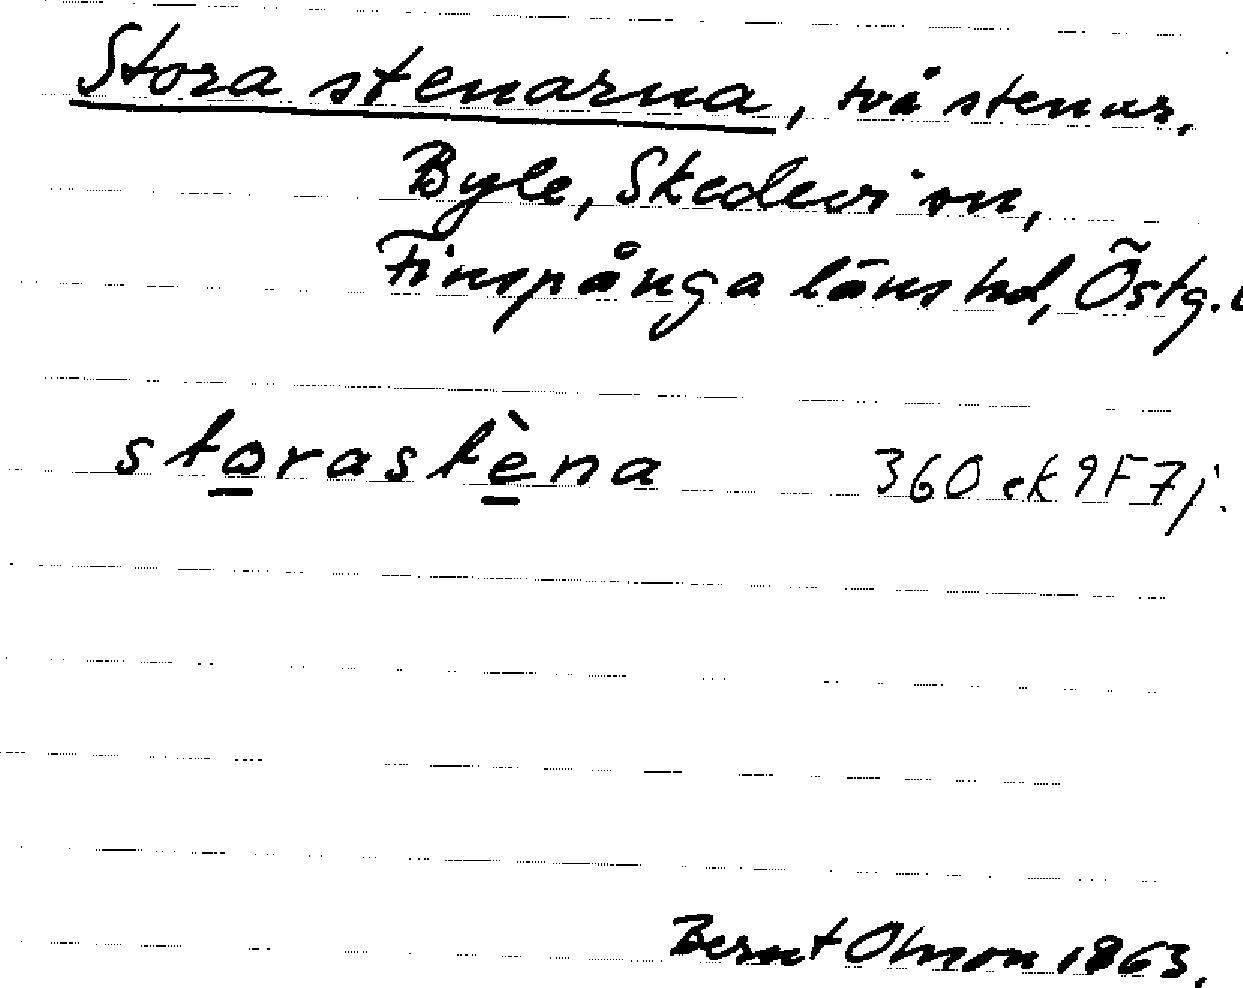 Stora stenarna, två stenar.
Byle, Skedevi sn,
Finspånga läns hd, Östg.
storastèna 360 ek 9F7j.
Bernt Olson 1963.